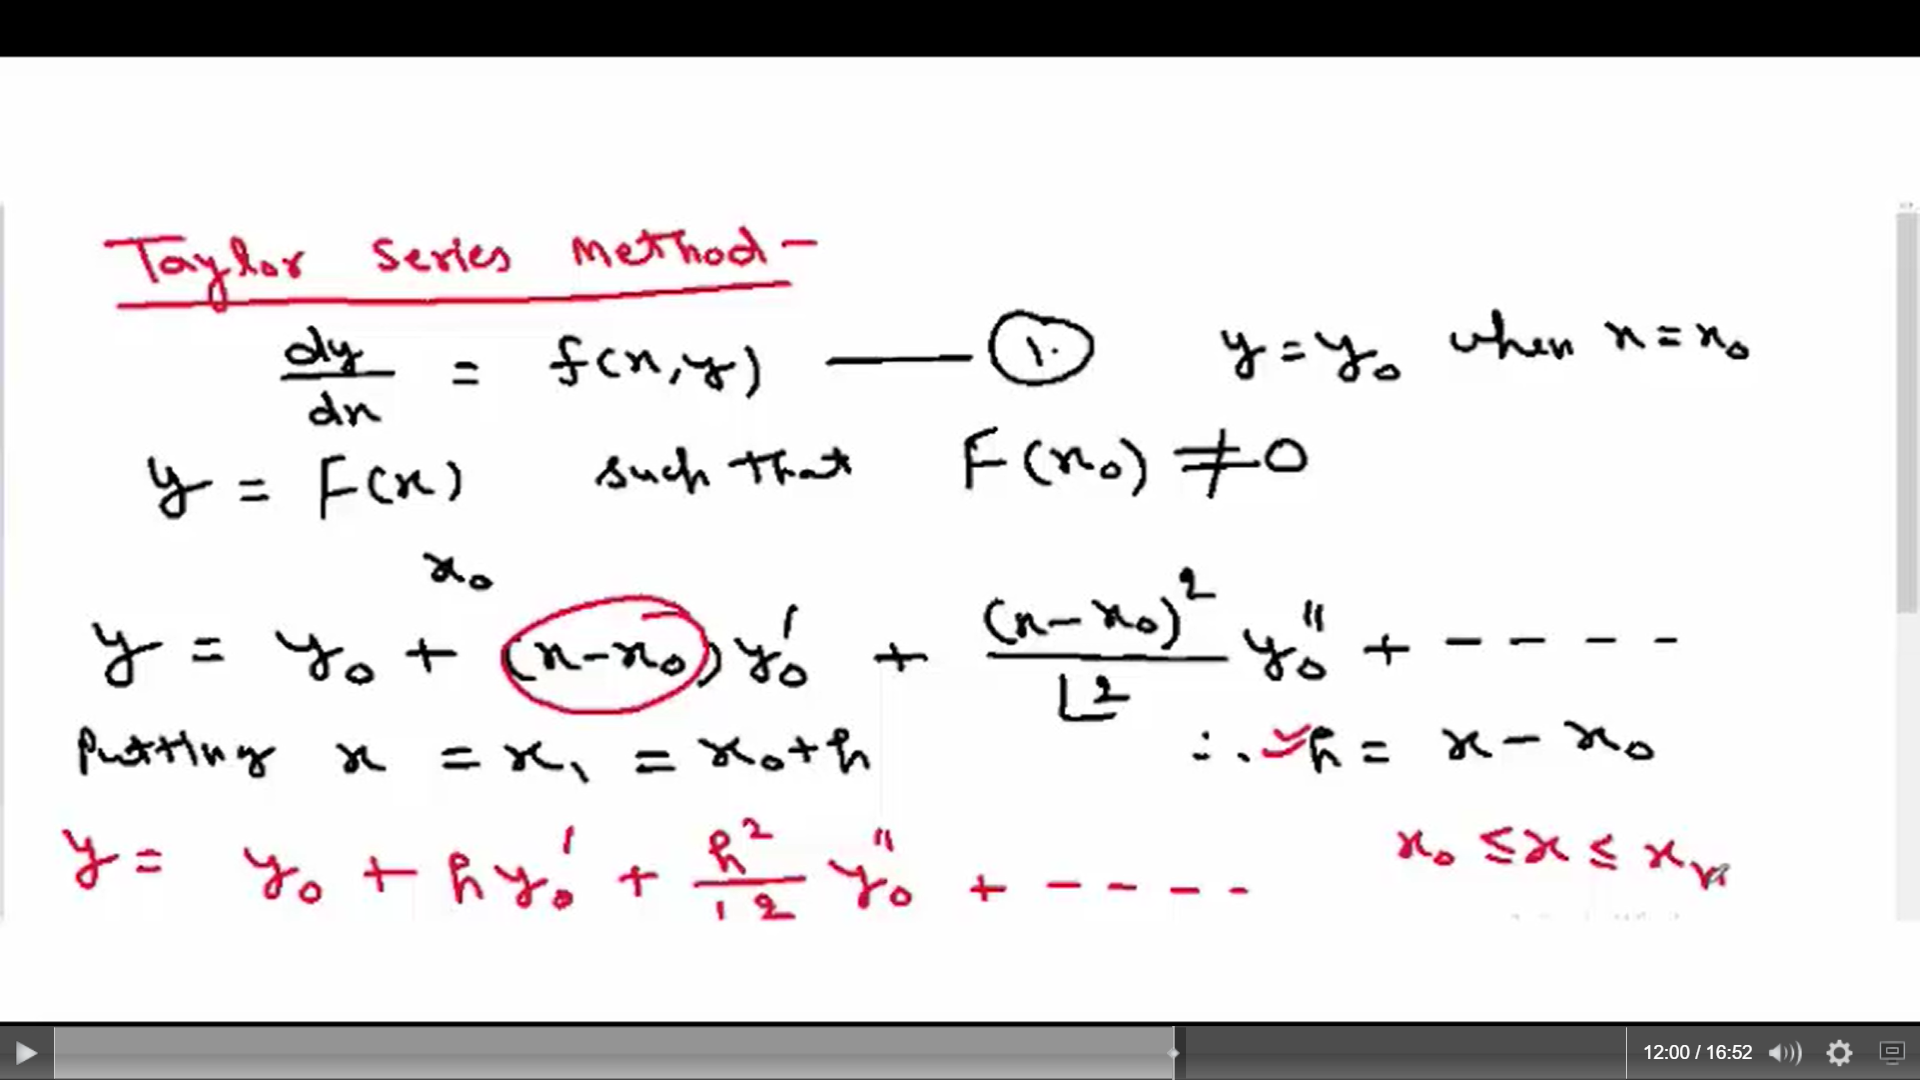 Taylor Series Method -
dy/dx = f(x, y) —— 1. y = y₀ when x = x₀
y = F(x) such that F(x₀) ≠ 0
x₀
y = y₀ + (x-x₀) y₀′ + (x-x₀)²/⌊2 y₀″ + - - - -
Putting x = x₁ = x₀+h ∴ h = x - x₀
y = y₀ + h y₀′ + h²/⌊2 y₀″ + - - - - x₀ ≤ x ≤ xₙ
12:00 / 16:52